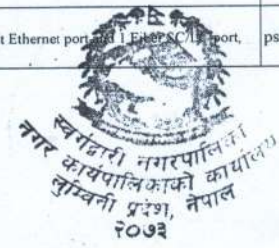 t Ethernet port and 1 Fiber SC/ port, ps
स्वर्गद्वारी नगरपालिका
नगर कार्यपालिकाको कार्यालय
लुम्बिनी प्रदेश, नेपाल
२०७३